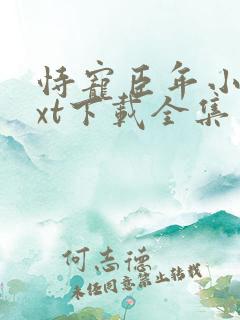 恃寵臣年小
xt下載全集
何志德
未經同意禁止轉載